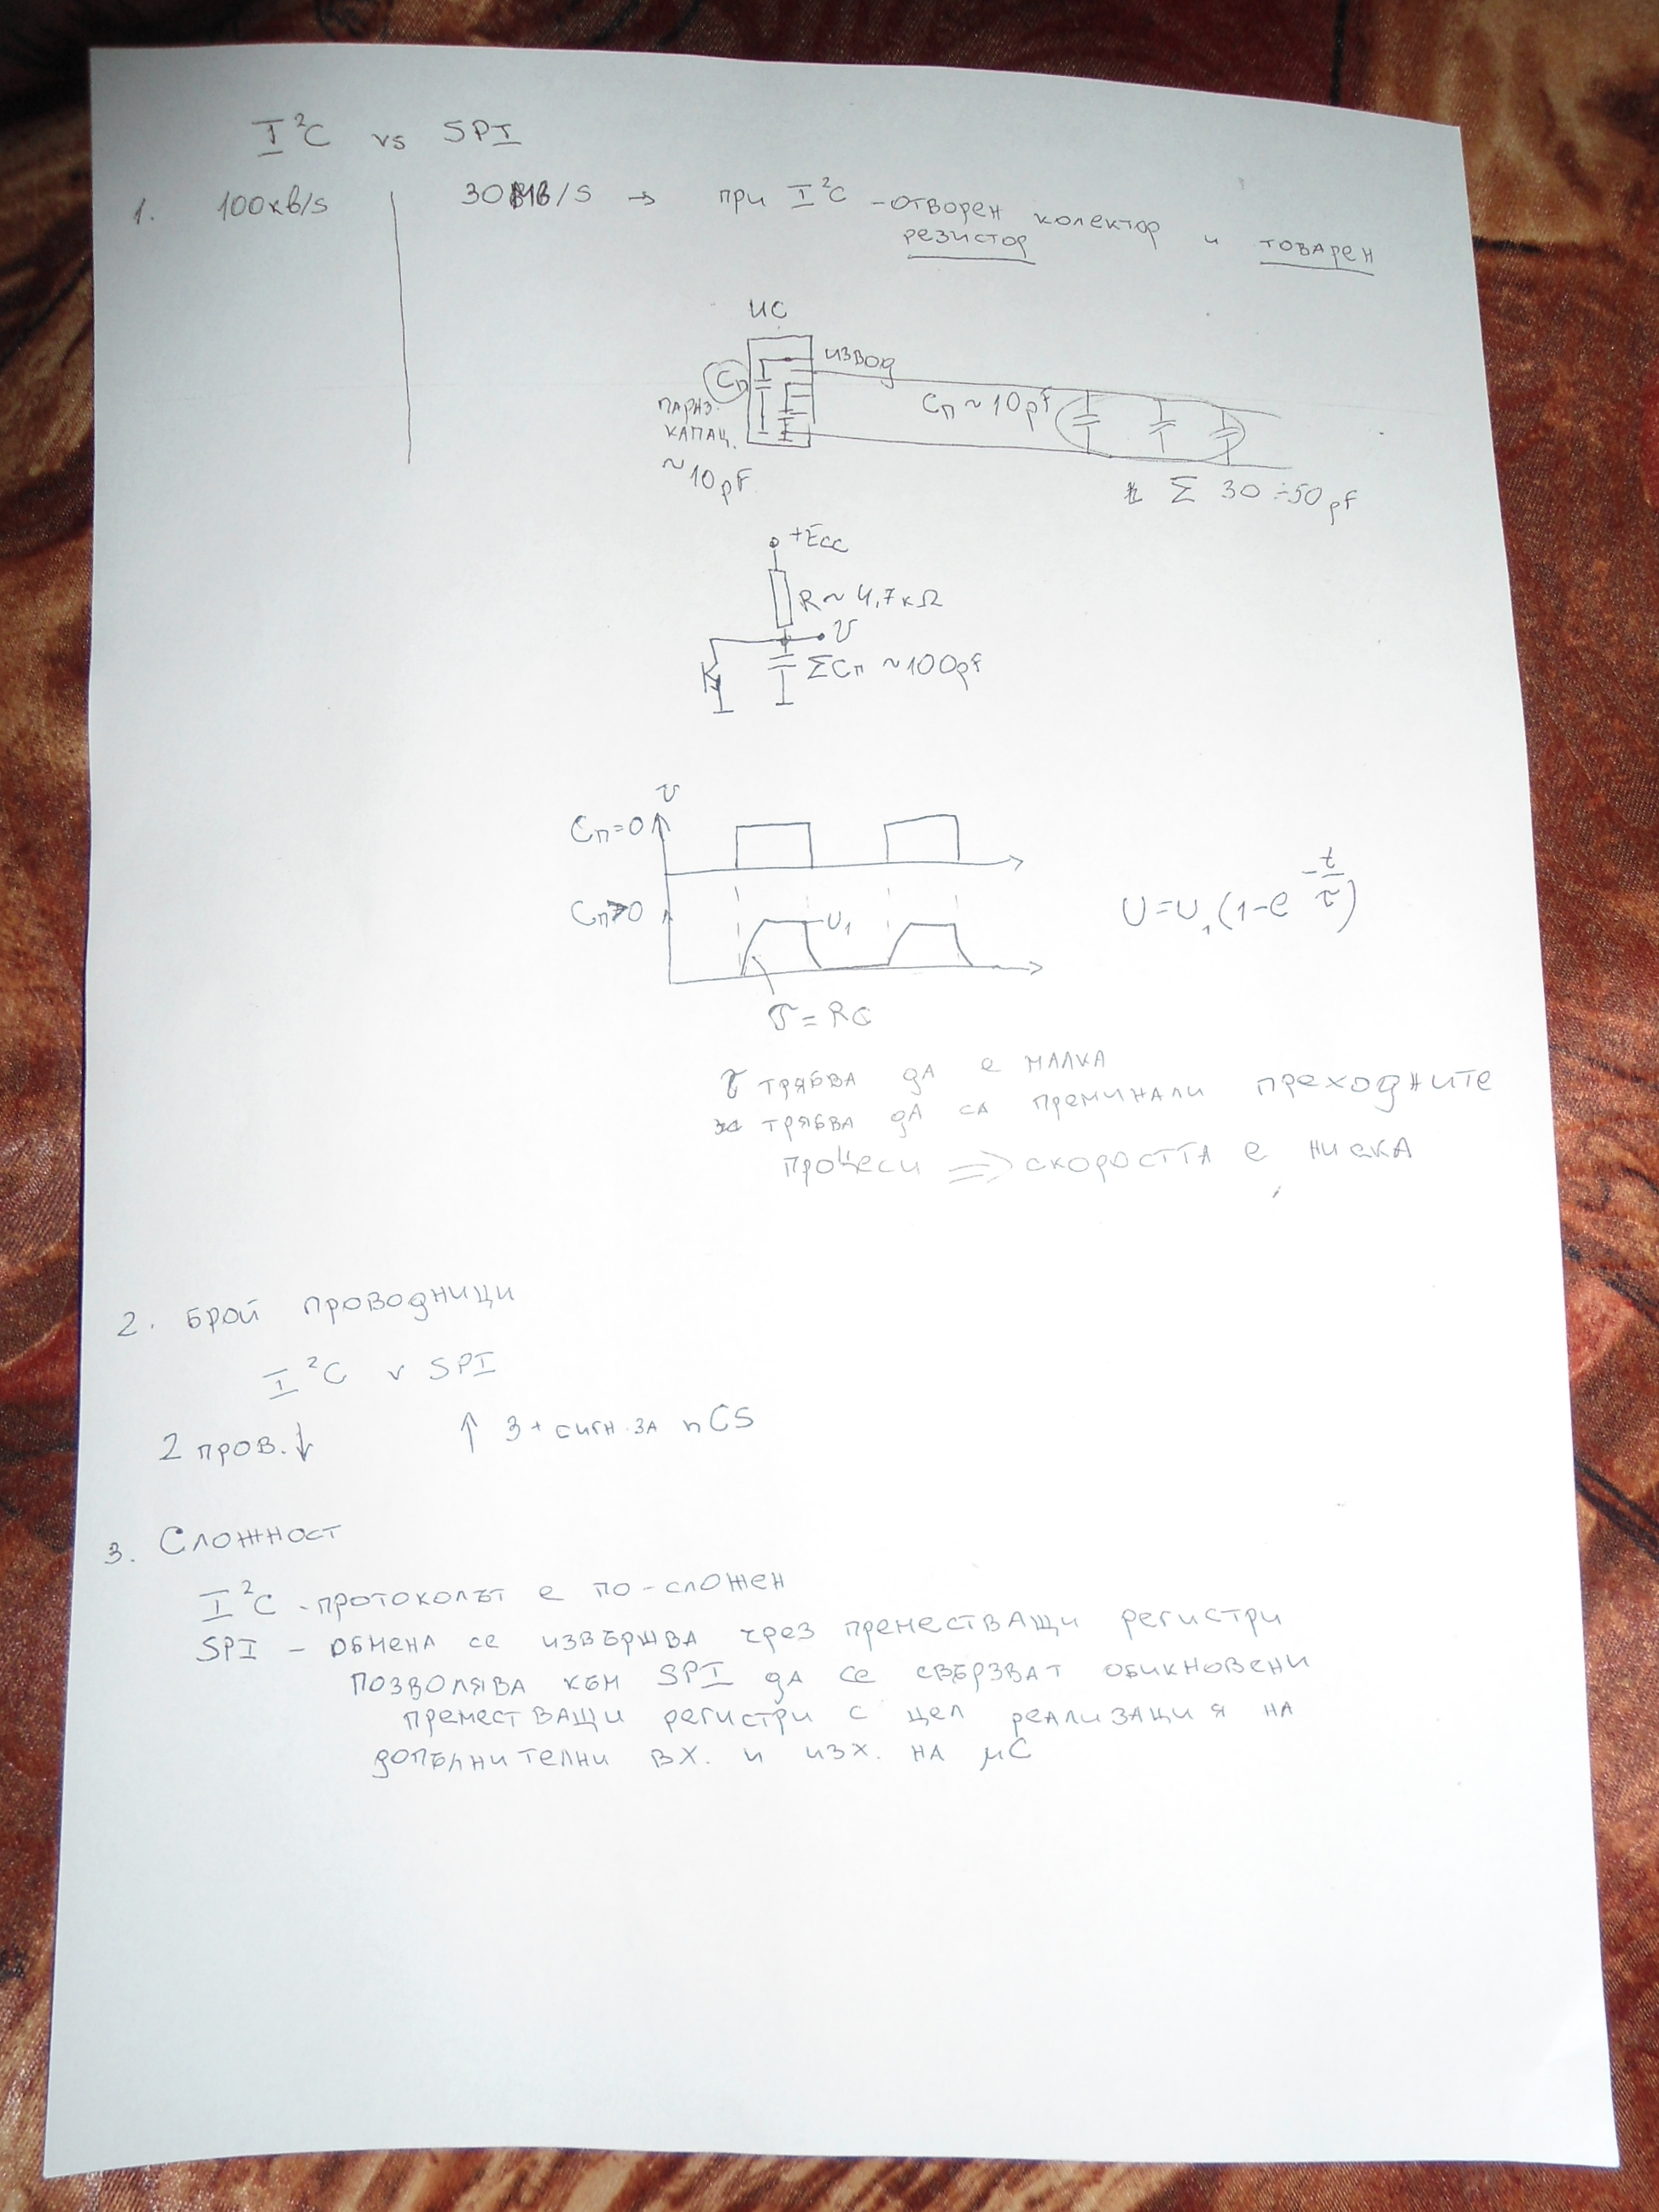 I²C vs SPI
1. 100кв/s 30МВ/s → при I²C - отворен колектор и товарен
резистор
ИС
извод
Cп
параз.
капац.
~10pF
Cп ~ 10pF
Σ 30÷50pF
+Ecc
R ~ 4,7кΩ
U
ΣCп ~100pF
U
Cп=0
Cп>0
U1
U=U1(1-e^(-t/τ))
τ = RC
τ трябва да е малка
трябва да са преминали преходните
процеси => скоростта е ниска
2. Брой проводници
I²C v SPI
2 пров.↓ ↑ 3+ сигн. за nCS
3. Сложност
I²C - протоколът е по-сложен
SPI - обмена се извършва чрез преместващи регистри
позволява към SPI да се свързват обикновени
преместващи регистри с цел реализация на
допълнителни вх. и изх. на μC